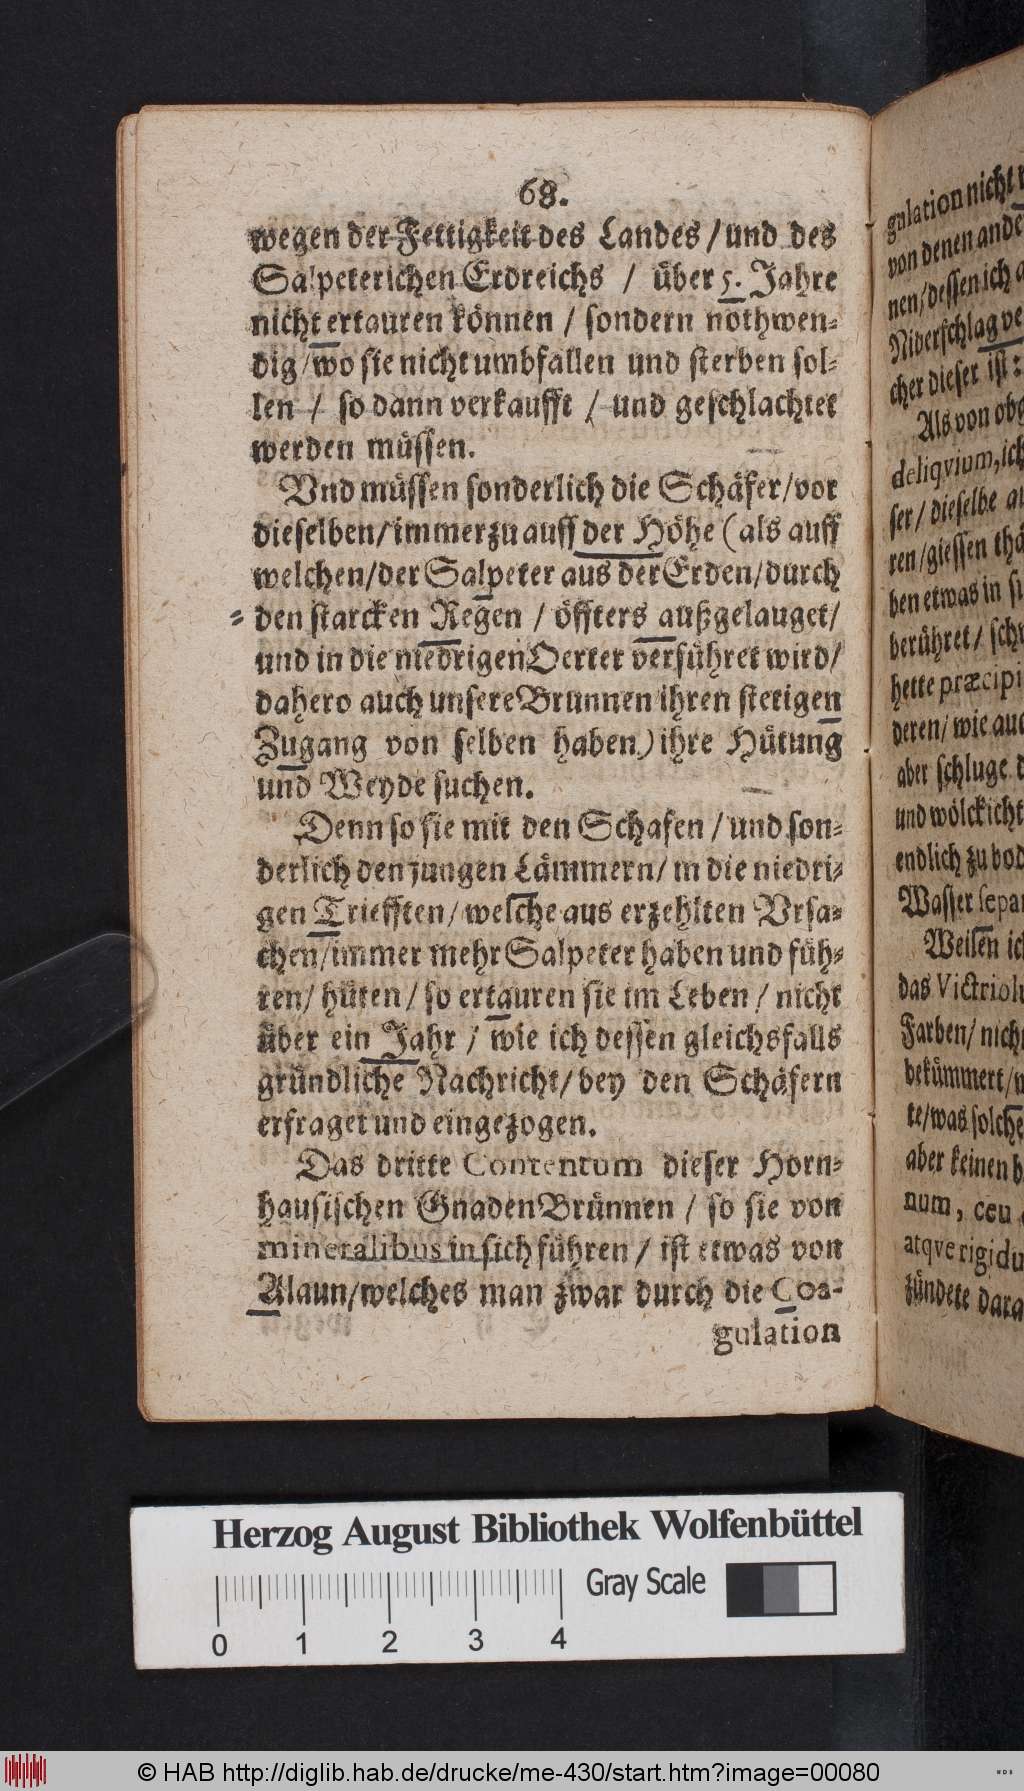 68.
wegen der Fettigkeit des Landes / und des
Salpeterichen Erdreichs / über 5. Jahre
nicht ertauren können / sondern nothwen-
dig / wo sie nicht umbfallen und sterben sol-
len / so dann verkaufft / und geschlachtet
werden müssen.
Vnd müssen sonderlich die Schäfer / vor
dieselben / immerzu auff der Höhe (als auff
welchen / der Salpeter aus der Erden / durch
den starcken Regen / öffters außgelauget /
und in die niedrigen Oerter verführet wird /
dahero auch unsere Brunnen ihren stetigen
Zugang von selben haben) ihre Hütung
und Weyde suchen.
Denn so sie mit den Schafen / und son-
derlich den jungen Lämmern / in die niedri-
gen Triefften / welche aus erzehlten Vrsa-
chen / immer mehr Salpeter haben und füh-
ren / hüten / so ertauren sie im Leben / nicht
über ein Jahr / wie ich dessen gleichsfalls
gründliche Nachricht / bey den Schäfern
erfraget und eingezogen.
Das dritte Contentum dieser Horn-
hausischen Gnaden Brünnen / so sie von
mineralibus in sich führen / ist etwas von
Alaun / welches man zwar durch die Coa-
gulation
gulation nicht
von denen ande
nen / dessen ich
Niderschlag ve
cher dieser ist:
Als von obg
deliqvium, ich
ser / dieselbe
ren / giessen thä
ben etwas in si
berühret / schw
hette præcipi
deren / wie auc
aber schluge d
und wölckicht
endlich zu bod
Wasser separ
Weilen ich
das Victriolu
Farben / nich
bekümmert /
te / was solche
aber keinen b
num, ceu
atqve rigidu
zündete dara
Herzog August Bibliothek Wolfenbüttel
Gray Scale
0 1 2 3 4
© HAB http://diglib.hab.de/drucke/me-430/start.htm?image=00080